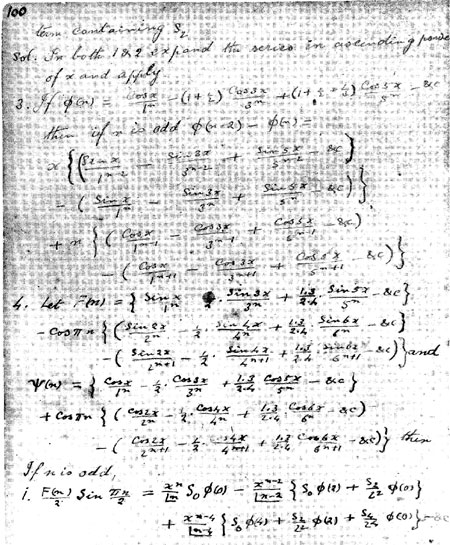 100
term containing S₂
Sol. In both 1 & 2 expand the series in ascending powe
of x and apply
3. If φ(n) = Cos x/1ⁿ − (1+½) Cos 3x/3ⁿ + (1+½+⅓) Cos 5x/5ⁿ − &c
then if n is odd φ(n−2) − φ(n) =
x { ( Sin x/1ⁿ⁻² − Sin 3x/3ⁿ⁻² + Sin 5x/5ⁿ⁻² − &c )
− ( Sin x/1ⁿ − Sin 3x/3ⁿ + Sin 5x/5ⁿ − &c ) }
+ n { ( Cos x/1ⁿ⁻¹ − Cos 3x/3ⁿ⁻¹ + Cos 5x/5ⁿ⁻¹ − &c )
− ( Cos x/1ⁿ⁺¹ − Cos 3x/3ⁿ⁺¹ + Cos 5x/5ⁿ⁺¹ − &c ) }
4. Let F(n) = { Sin x/1ⁿ . Sin 3x/3ⁿ + 1.3/2.4 . Sin 5x/5ⁿ − &c }
− Cos πn { ( Sin 2x/2ⁿ − ½ . Sin 4x/4ⁿ + 1.3/2.4 . Sin 6x/6ⁿ − &c )
− ( Sin 2x/2ⁿ⁺¹ − ½ . Sin 4x/4ⁿ⁺¹ + 1.3/2.4 . Sin 6x/6ⁿ⁺¹ − &c ) } and
Ψ(n) = { Cos x/1ⁿ − ½ . Cos 3x/3ⁿ + 1.3/2.4 Cos 5x/5ⁿ − &c }
+ Cos πn { ( Cos 2x/2ⁿ − ½ . Cos 4x/4ⁿ + 1.3/2.4 . Cos 6x/6ⁿ − &c )
− ( Cos 2x/2ⁿ⁺¹ − ½ . Cos 4x/4ⁿ⁺¹ + 1.3/2.4 Cos 6x/6ⁿ⁺¹ − &c ) } then
If n is odd,
i. F(n)/2 Sin πn/2 = xⁿ/|n S₀ φ(0) − xⁿ⁻²/|n−2 { S₀ φ(2) + S₂/2² φ(0) }
+ xⁿ⁻⁴/|n−4 { S₀ φ(4) + S₂/2² φ(2) + S₄/2⁴ φ(0) } − &c